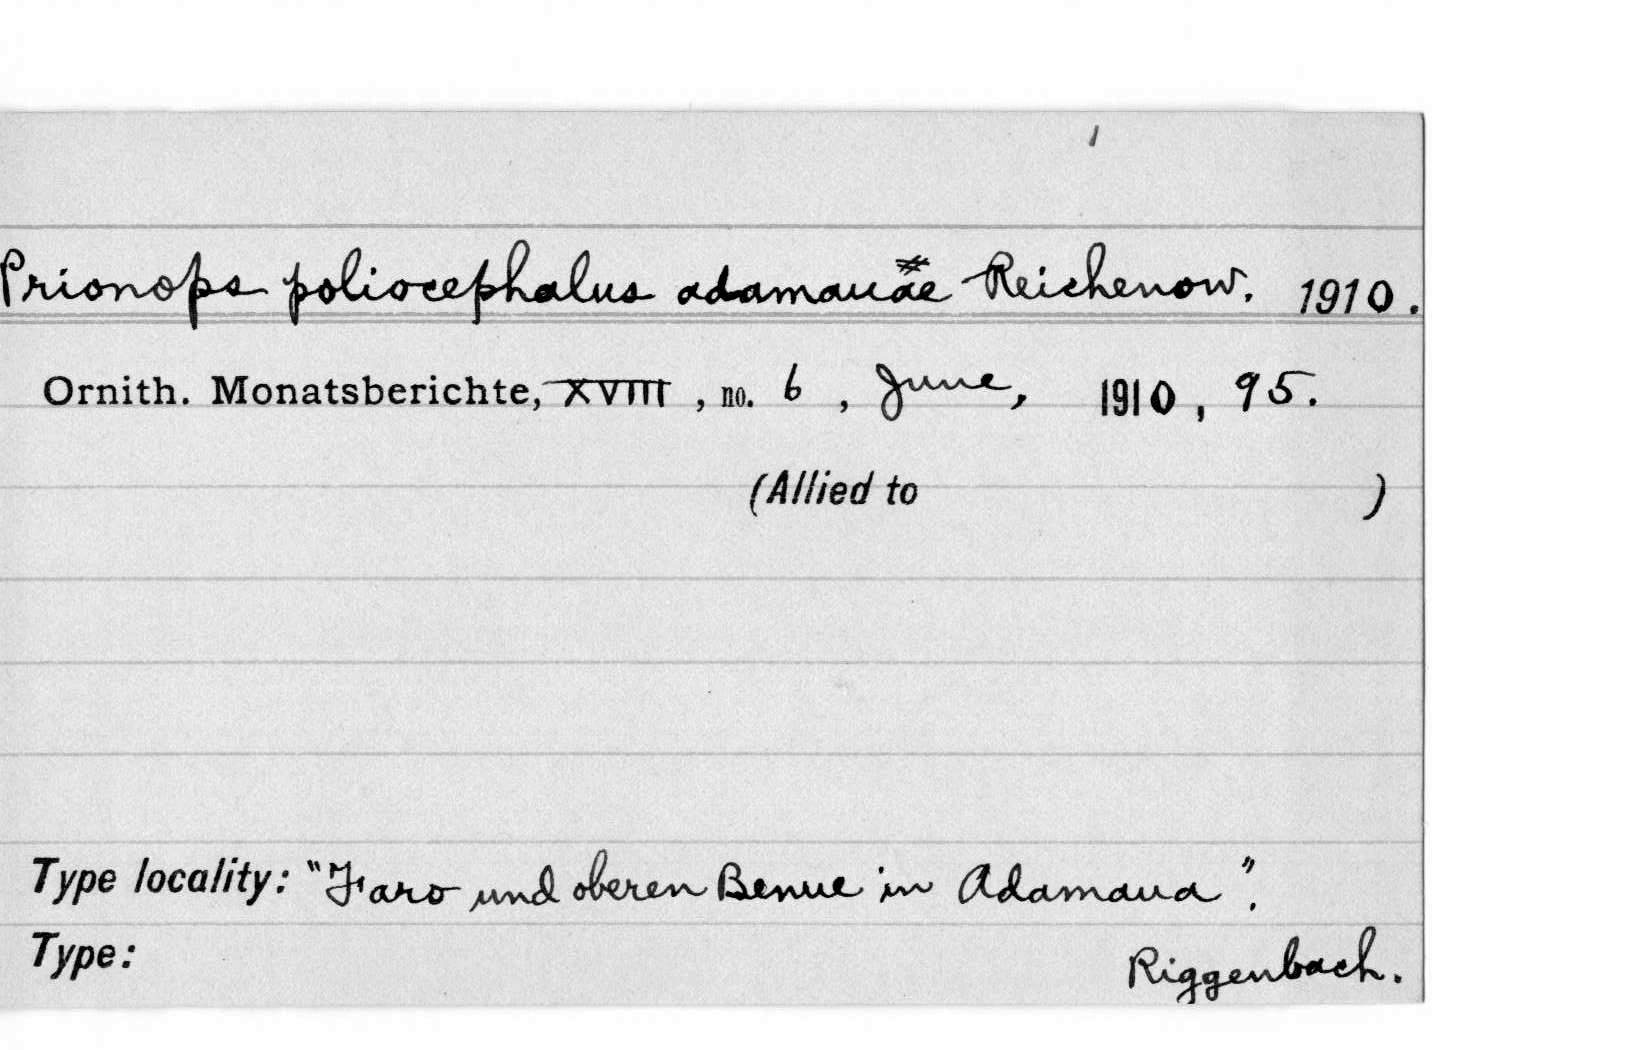 Prionops poliocephalus adamauae Reichenow. 1910.
Ornith. Monatsberichte, XVIII, no. 6, June, 1910, 95.
(Allied to )
Type locality: "Faro und oberen Benue in Adamaua".
Type: Riggenbach.